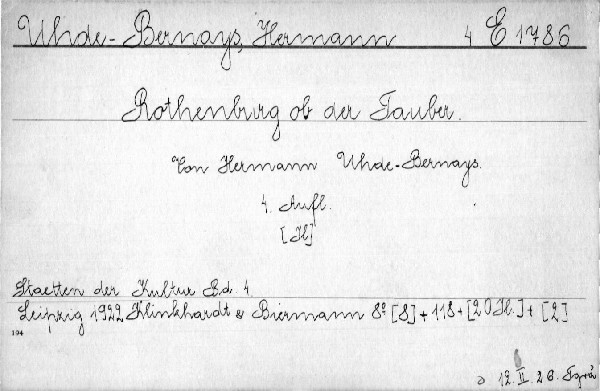 Uhde-Bernays, Hermann 4 E 1786
Rothenburg ob der Tauber.
Von Hermann Uhde-Bernays.
4. Aufl.
[Il]
Staetten der Kultur Bd. 4.
Leipzig 1922 Klinkhardt & Biermann 8º [8] + 118 + [20 Il.] + [2]
194
12. II. 26.